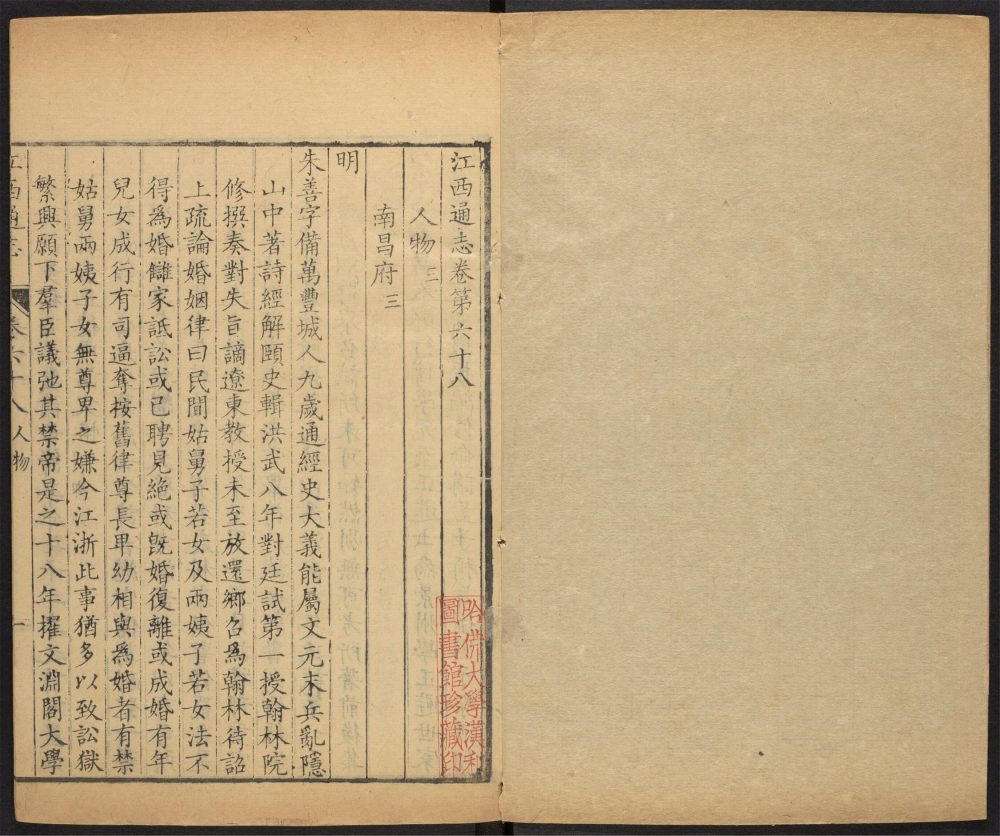 江西通志卷第六十八
人物三
南昌府三
明
朱善字備萬豐城人九歲通經史大義能屬文元末兵亂隱
山中著詩經解頤史輯洪武八年對廷試第一授翰林院
修撰奏對失旨謫遼東教授未至放還鄉召爲翰林待詔
上疏論婚姻律曰民間姑舅子若女及兩姨子若女法不
得爲婚讎家詆訟或已聘見絕或旣婚復離或成婚有年
兒女成行有司逼奪按舊律尊長卑幼相與爲婚者有禁
姑舅兩姨子女無尊卑之嫌今江浙此事猶多以致訟獄
繁興願下羣臣議弛其禁帝是之十八年擢文淵閣大學
江西通志
卷六十八人物
一
哈佛大學漢和
圖書館珍藏印